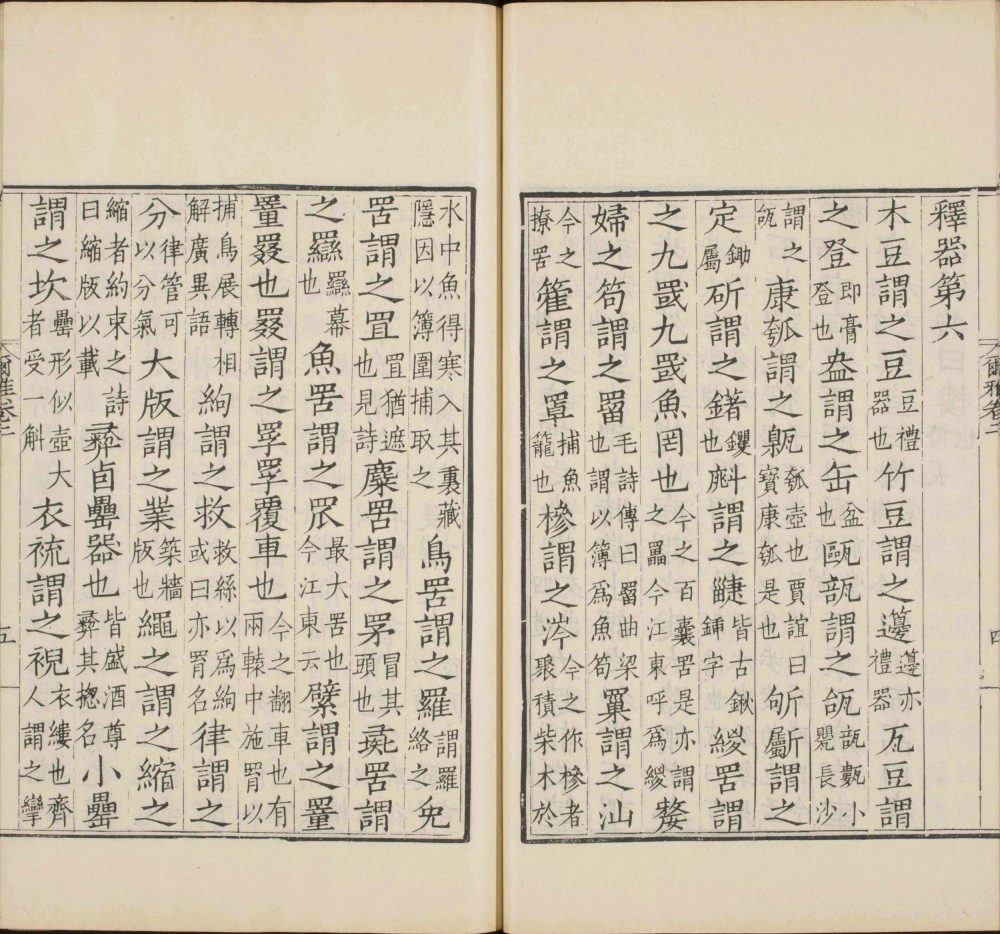 釋器第六
木豆謂之豆豆禮器也竹豆謂之籩籩亦禮器瓦豆謂
之登即膏登也盎謂之缶盆也甌瓿謂之瓵瓿甊小甖長沙
謂之瓵康瓠謂之甈瓠壺也賈誼曰寶康瓠是也斪斸謂之
定鋤屬斫謂之鐯钁㪺謂之疀皆古鍬鍤字緵罟謂
之九罭九罭魚罔也今之百囊罟是亦謂之䍡今江東呼爲緵嫠
婦之笱謂之罶毛詩傳曰罶曲梁也謂以簿爲魚笱罺謂之汕
今之撩罟篧謂之罩捕魚籠也槮謂之涔今之作槮者聚積柴木於
水中魚得寒入其裏藏隱因以簿圍捕取之鳥罟謂之羅謂羅絡之兔
罟謂之罝罝猶遮也見詩麋罟謂之罞冒其頭也彘罟謂
之羉羉幕也魚罟謂之罛最大罟也今江東云繴謂之罿
罿罬也罬謂之罦罦覆車也今之翻車也有兩轅中施罥以
捕鳥展轉相解廣異語絇謂之救救絲以爲絇或曰亦罥名律謂之
分律管可以分氣大版謂之業築牆版也繩之謂之縮之
縮者約束之詩曰縮版以載彝卣罍器也皆盛酒尊彝其揔名小罍
謂之坎罍形似壺大者受一斛衣裗謂之祝衣縷也齊人謂之攣
爾雅卷二
四
五